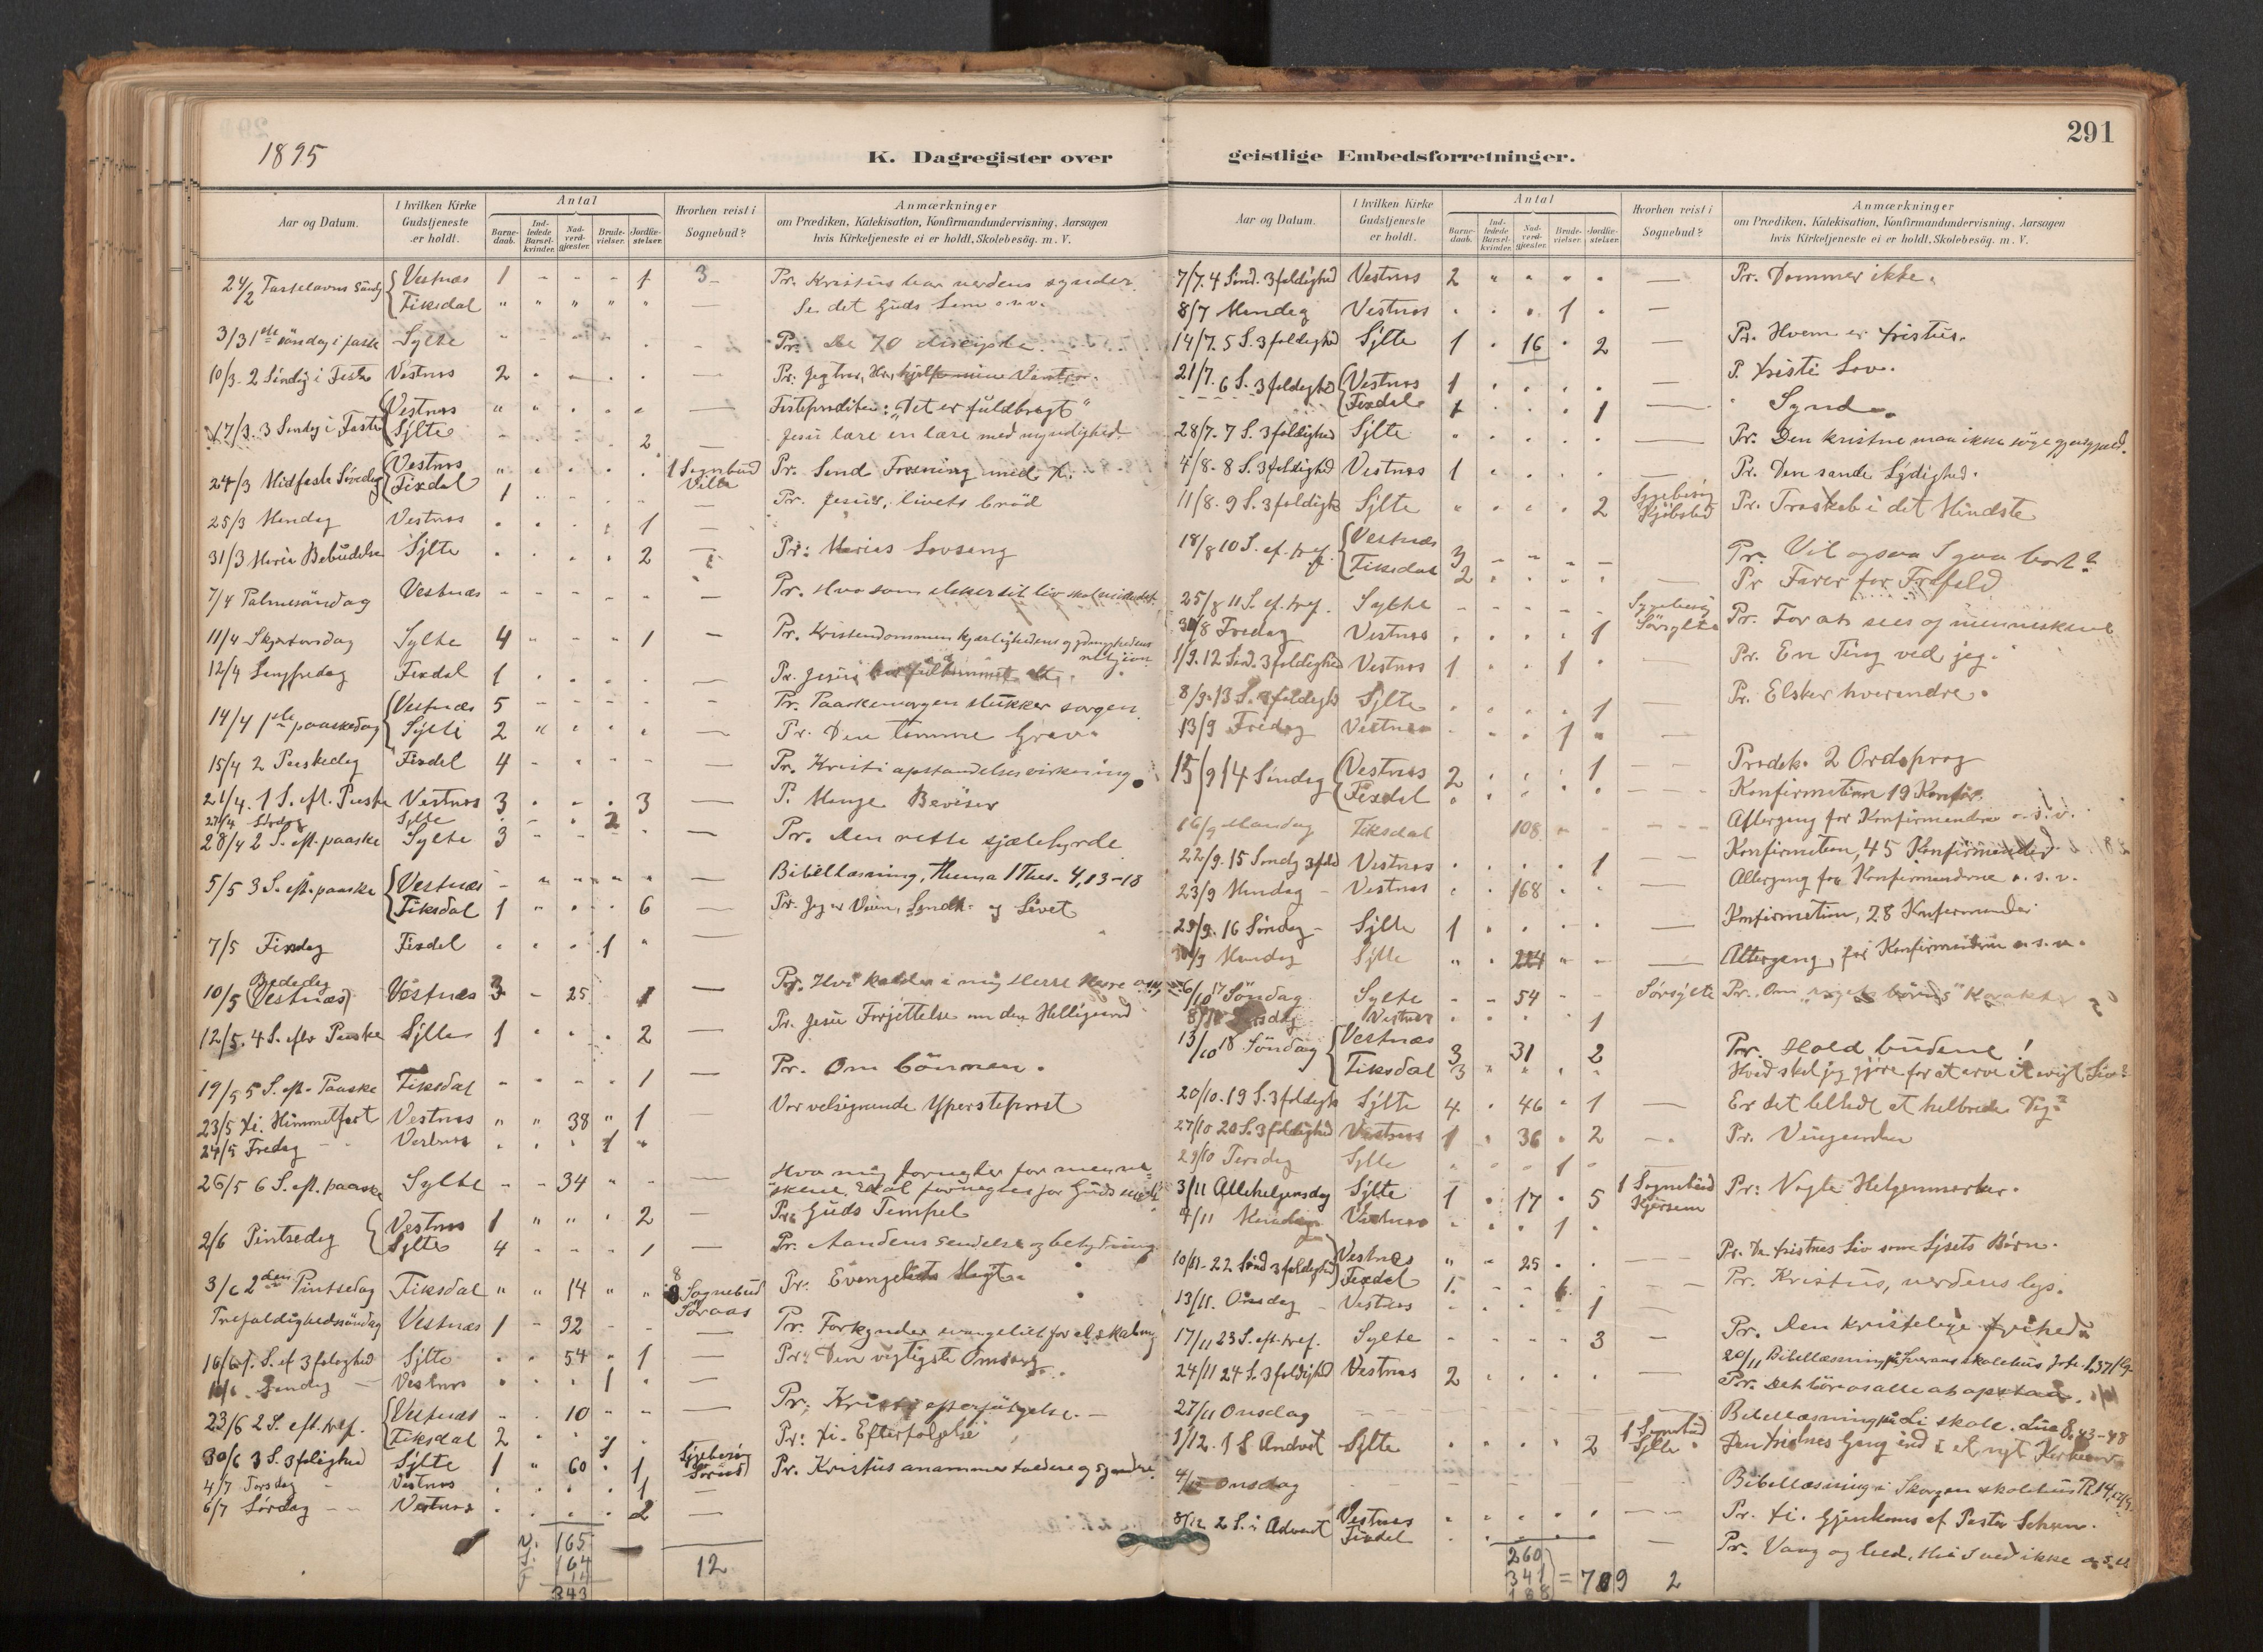 1895
K. Dagregister over
Aar og Datum.
I hvilken Kirke Gudstjeneste er holdt.
Antal
Barne-daab.
Ind-ledede Barsel-kvinder.
Nad-verd-gjæster.
Brude-vielser.
Jordfæ-stelser.
Hvorhen reist i Sognebud?
Anmærkninger
om Prædiken, Katekisation, Konfirmandundervisning, Aarsagen
hvis Kirketjeneste ei er holdt, Skolebesög. m. V.
24/2 Fastelavns Søndag Vestnæs 1 - - - 1 3 Pr. Kristus bar verdens synder.
Tiksdal " " " " " — Se det Guds Lam o.s.v.
3/3 1ste söndag i faste Sylte — Pr. De 70 disciple.
10/3 2 Søndag i Faste Vestnes 2 — Pr. Jeg tror, Hr., hjelp min Vantro.
17/3 3 Søndag i Faste Vestnes " " — Fasteprædiken: "Det er fuldbragt"
Sylte 2 — Jesu lære en lære med myndighed
24/3 Midfaste Søndag Vestnes 1 Sognebud Pr. Send
Fixdal 1 — Pr. Jesus, livets bröd
25/3 Mandag Vestnes 1 —
31/3 Maria Bebudelse Sylte 2 — Pr: Marias Lovsang
7/4 Palmesöndag Vestnæs - - - - - — Pr. Hvo som elsker sit liv skal miste det.
11/4 Skjærtorsdag Sylte 4 1 — Pr. Kristendommen kjærlighedens og ydmyghedens religion
12/4 Langfredag Fixdal 1 — Pr. Jesus har fuldkommet alt.
14/4 1ste paaskedag Vestnæs 5 — Pr. Paaskemorgen slukker sorgen
Sylte 2 — Pr. Den tomme Grav.
15/4 2 Paaskedag Fixdal 4 — Pr. Kristi opstandelses virkning.
21/4. 1 S. eft. Paaske Vestnes 3 3 — P. Mange Beviser
27/4 Lördag Sylte 2
28/4 2 S. eft. paaske Sylte 3 — Pr. Den rette sjælehyrde
5/5 3 S. eft. paaske Vestnæs — Bibellæsning, Thema 1 Thes. 4,13-18
Tiksdal 1 6 — Pr. Jeg er Veien, Sandh. og Livet
7/5 Tirsdag Fixdal 1 —
10/5 Bededag (Vestnæs) Vestnæs 3 - 25 1 — Pr. Hvi kalder i mig Herre Herre o.s.v.
12/5. 4 S. efter Paaske Sylte 1 2 — Pr. Jesu Forjettelse om den Helligaand
19/5 5 S. eft. Paaske Tiksdal 1 — Pr. Om bönnen.
23/5 Xi. Himmelfart Vestnes " " 38 " 1 — Vor velsignende Ypperstepræst
24/5 Fredag Vestnes 1
26/5 6 S. eft. paaske Sylte - - 34 — Hvo mig fornegter for menne-
skene, skal fornegtes for Guds
2/6 Pintsedag Vestnes 1 2 — Pr. Guds Tempel
Sylte 4 1 — Pr. Aandens sendelse og betydning.
3/6 2den Pintsedag Tiksdal " " 14 " " 8 Sognebud Söraas Pr. Evangeliets Magt.
Trefoldighedssöndag Vestnæs 1 - 32 — Pr. Forkynder evangeliet for al skabning
16/6 1. S. ef 3foldighed Sylte 54 1 — Pr: Den vigtigste Omsorg
Vestnes 1
23/6 2 S. eft. tref. Vestnæs 10 — Pr. Kristi efterfölgelse.
Tiksdal 2 Pr: Xi. Efterfølgelse
30/6 3 S. 3foldighed Sylte 1 " 60 1 Sygebesög Pr. Kristus anammer toldere og syndere.
4/7 Torsdag Vestnes 1 —
6/7 Lørdag Vestnes 2 —
V. 165
S. 164
F 14
343
12
291
geistlige Embedsforretninger.
Aar og Datum.
I hvilken Kirke Gudstjeneste er holdt.
Antal
Barne-daab.
Ind-ledede Barsel-kvinder.
Nad-verd-gjæster.
Brude-vielser.
Jordfæ-stelser.
Hvorhen reist i Sognebud?
Anmærkninger
om Prædiken, Katekisation, Konfirmandundervisning, Aarsagen
hvis Kirketjeneste ei er holdt, Skolebesög. m. V.
7/7. 4 Sönd. 3foldighed Vestnes 2 — Pr. Dømmer ikke.
8/7 Mandag Vestnes 1 —
14/7. 5 S. 3foldighed Sylte 1 16 2 — Pr. Hvem er Kristus.
21/7. 6 S. 3foldighed Vestnes 1 — P. Kristi Lov.
Fixdal 1 1 — Synd
28/7. 7 S. 3foldighed Sylte — Pr. Den kristne maa ikke söge gjengjæld.
4/8. 8 S. 3foldighed Vestnes 1 — Pr. Den sande Lydighed.
11/8. 9 S. 3foldighed Sylte 2 Sygebesög Pr. Troskab i det Mindste
18/8 10 S. ef. tref. Vestnæs 3 Pr. Vil ogsaa I gaa bort?
Tiksdal 2 — Pr Farer for Frafald
25/8 11 S. ef. tref. Sylte Sygebesög Sörsylte Pr. For at sees af menneskene
30/8 Fredag Vestnes 1
1/9. 12 Sönd. 3foldighed Vestnes 1 1 — Pr. En Ting ved jeg.
8/9. 13 S. 3foldighed Sylte 1 Pr. Elsker hverandre.
13/9 Fredag Vestnes 1
15/9 14 Söndag Vestnes 2 1 — Prædik. 2 Ordsprog
Fixdal Konfirmation 19 Konfir.
16/9 Mandag Tiksdal 108 Altergang for Konfirmandene o.s.v.
22/9. 15 Søndag 3fold Vestnes 1 — Konfirmation, 45 Konfirmander
23/9 Mandag Vestnes 168 — Altergang for Konfirmanderne o.s.v.
29/9. 16 Söndag Sylte 1 — Konfirmation, 28 Konfirmander
30/9 Mandag Sylte 224 — Altergang, for Konfirmanderne o.s.v.
6/10 17 Söndag Sylte - - 54 Sørsylte Pr. Om "rigets börns" Karakter
8/10 Tirsdag Vestnes 1
13/10 18 Söndag Vestnæs 3 31 2 Pr. Hold budene!
Tiksdal 3 Hvad skal jeg gjøre for at arve et evigt Liv?
20/10. 19 S. 3foldigh Sylte 4 46 1 — Er det tilladt at helbrede Dig?
27/10 20 S. 3foldighed Vestnes 1 36 2 Pr. Vingaarden
29/10 Tirsdag Sylte 1
3/11 Allehelgensdag Sylte 1 17 5 1 Sognebud Kjersem Pr: Vogte Helgenmærker.
4/11 Mandag Vestnes 1
10/11. 22 Sönd 3foldighed Vestnes " 25 — Pr. De Kristnes Liv som Lysets Börn.
Fixdal 1 Pr. Kristus, verdens lys.
13/11. Onsdag Vestnes 1
17/11 23 S. eft. tref. Sylte 3 — Pr. Den kristelige frihed
20/11 Bibellæsning
24/11 24 S. 3foldighed Vestnes 2 Pr. Det bör os alle at opstaa.
27/11 Onsdag Bibellæsning på Li skole. Luc 8,43-48
1/12. 1 S Advent Sylte 2 1 Sognebud Sylte Den Kristnes Gang ind i et nyt Kirkeaar
4/12 Onsdag Bibellæsning i Skorgen skolehus
8/12 2 S. i Advent Vestnes Pr. Xi. Gjenkomst af Pastor
Fixdal — Pr. Vaag og bed, thi I ved ikke o.s.v.
260
341
188
= 789
2